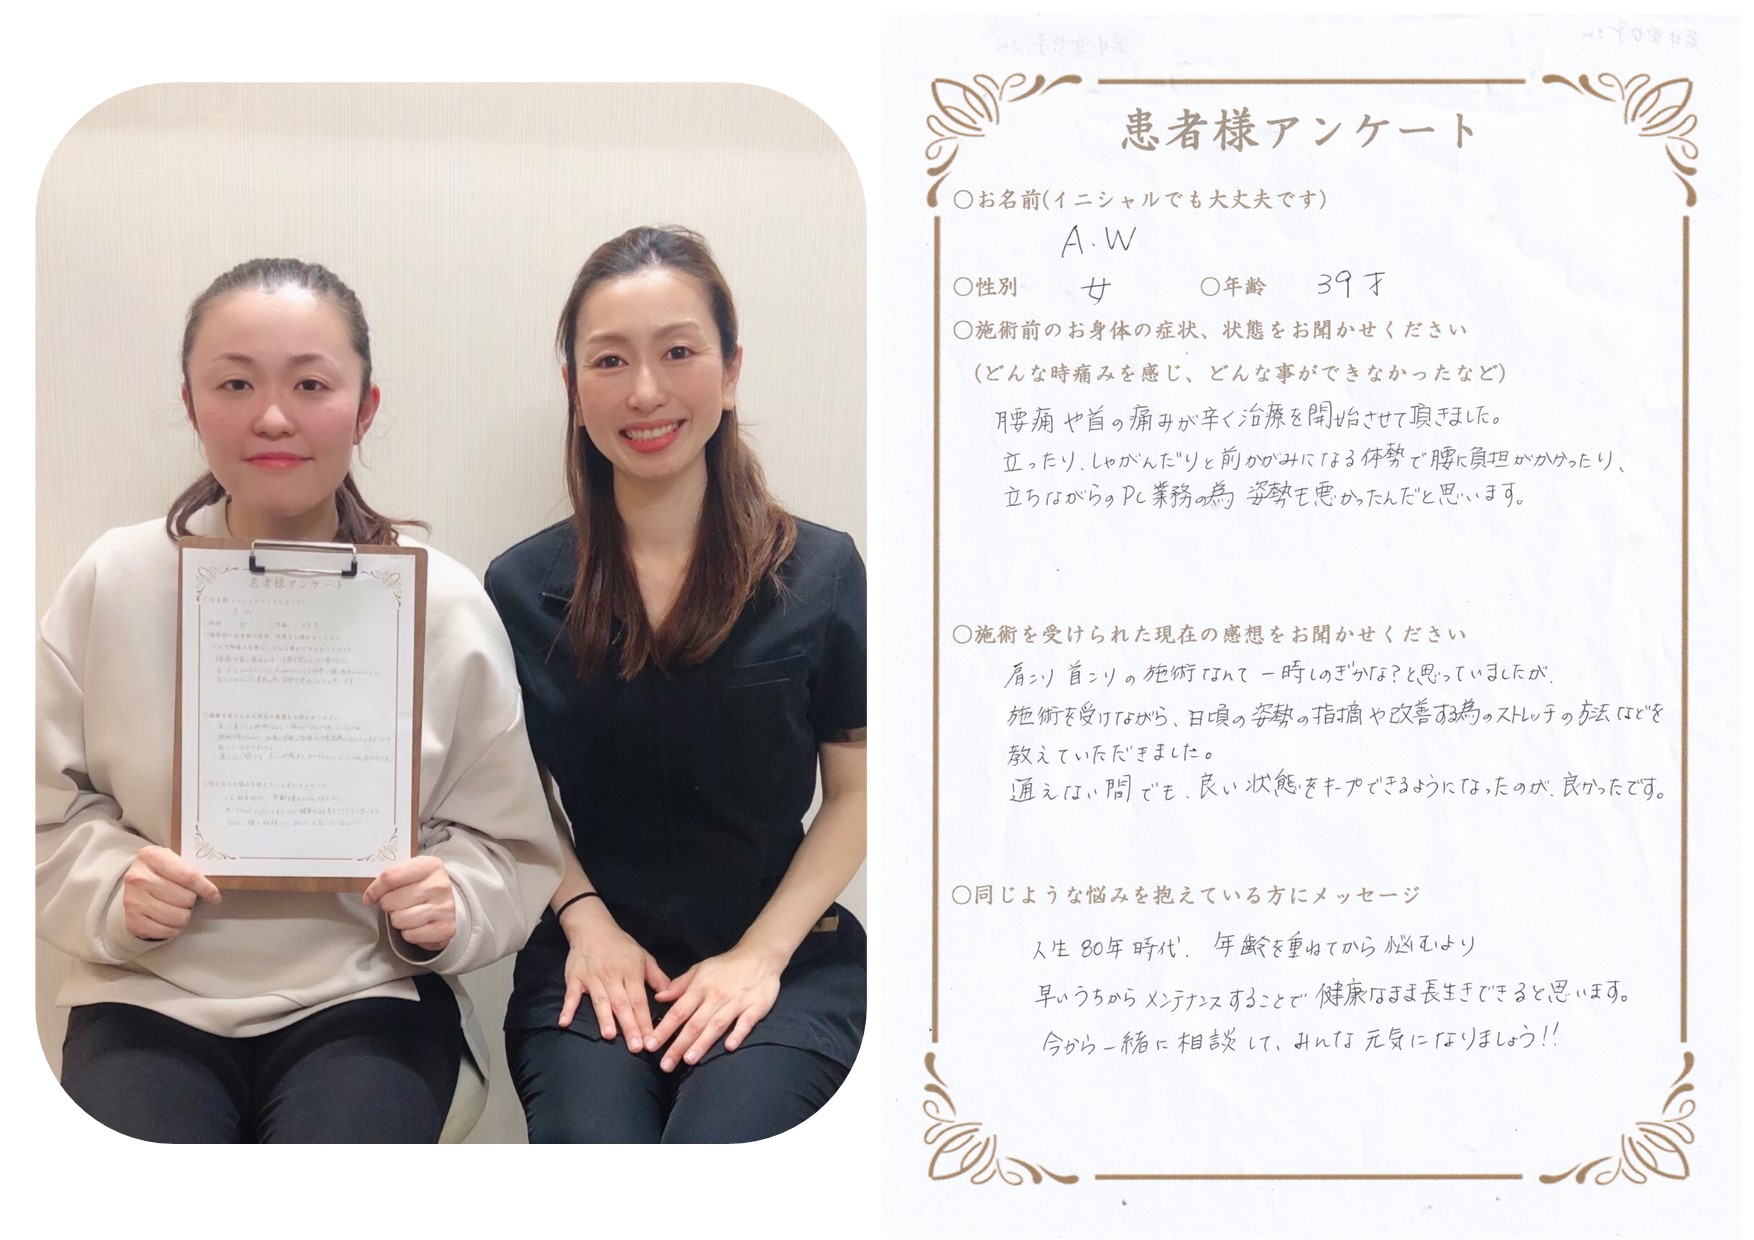 患者様アンケート
○お名前(イニシャルでも大丈夫です)
A.W
○性別 女 ○年齢 39才
○施術前のお身体の症状、状態をお聞かせください
(どんな時痛みを感じ、どんな事ができなかったなど)
腰痛や首の痛みが辛く治療を開始させて頂きました。
立ったり、しゃがんだりと前かがみになる体勢で腰に負担がかかったり、
立ちながらのPC業務の為 姿勢も悪かったんだと思います。
○施術を受けられた現在の感想をお聞かせください
肩こり首こりの施術なんて一時しのぎかな?と思っていましたが、
施術を受けながら、日頃の姿勢の指摘や改善する為のストレッチの方法などを
教えていただきました。
通えない間でも、良い状態をキープできるようになったのが、良かったです。
○同じような悩みを抱えている方にメッセージ
人生80年時代、年齢を重ねてから悩むより
早いうちからメンテナンスすることで健康なまま長生きできると思います。
今から一緒に相談して、みんな元気になりましょう!!